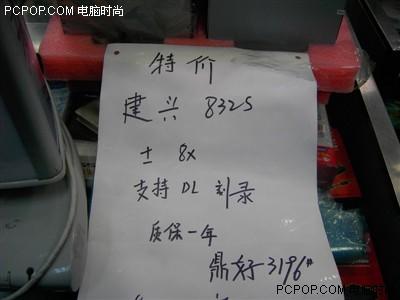 PCPOP.COM 电脑时尚
特价
建兴 832S
± 8X
支持 DL 刻录
质保一年
鼎好-3196#
PCPOP.COM 电脑时尚